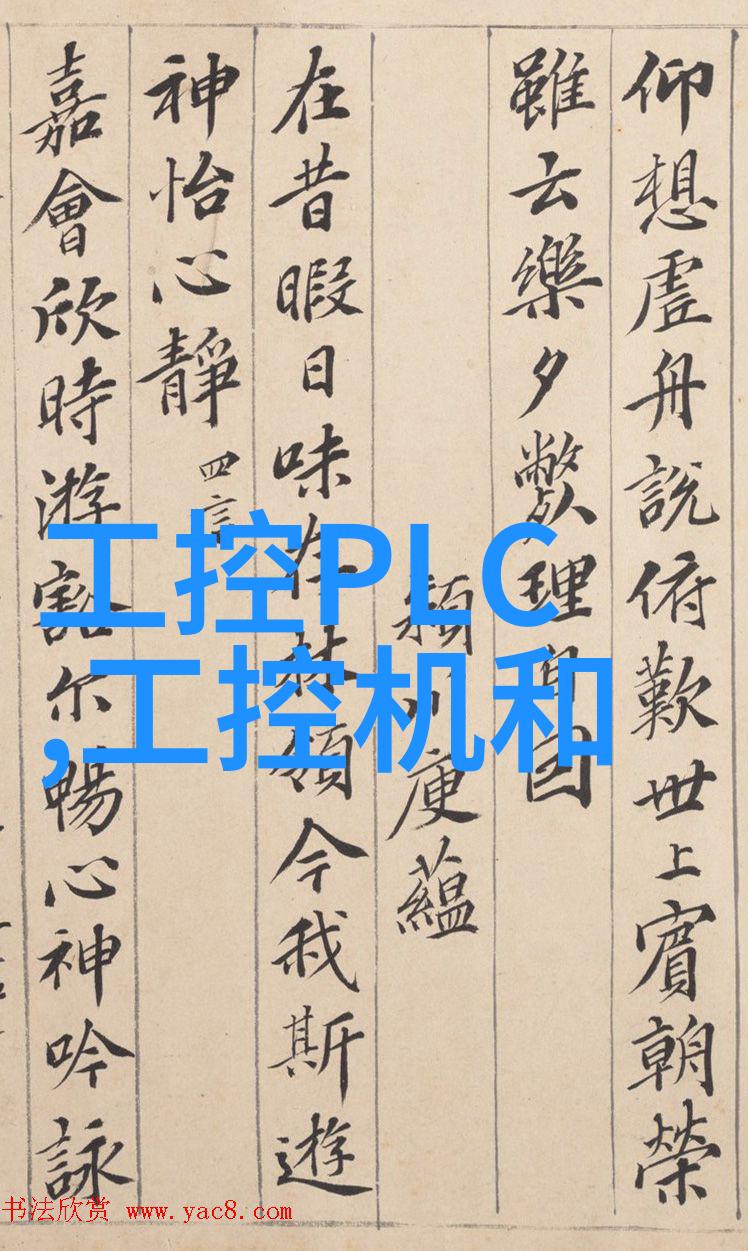 仰想虛舟說俯歎世上賓朝榮
雖云樂夕斃理自因
潁川庾蘊
在昔暇日味存林嶺今我斯遊
神怡心靜 四言
嘉會欣時游豁尔暢心神吟詠
工控PLC
,工控机和
书法欣赏 www.yac8.com